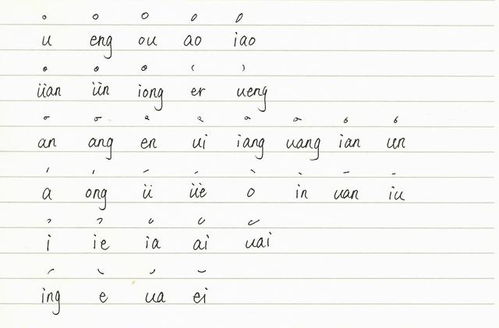 u eng ou ao iao
üan ün iong er ueng
an ang en ui iang uang ian un
a ong ü üe o in uan iu
i ie ia ai uai
ing e ua ei